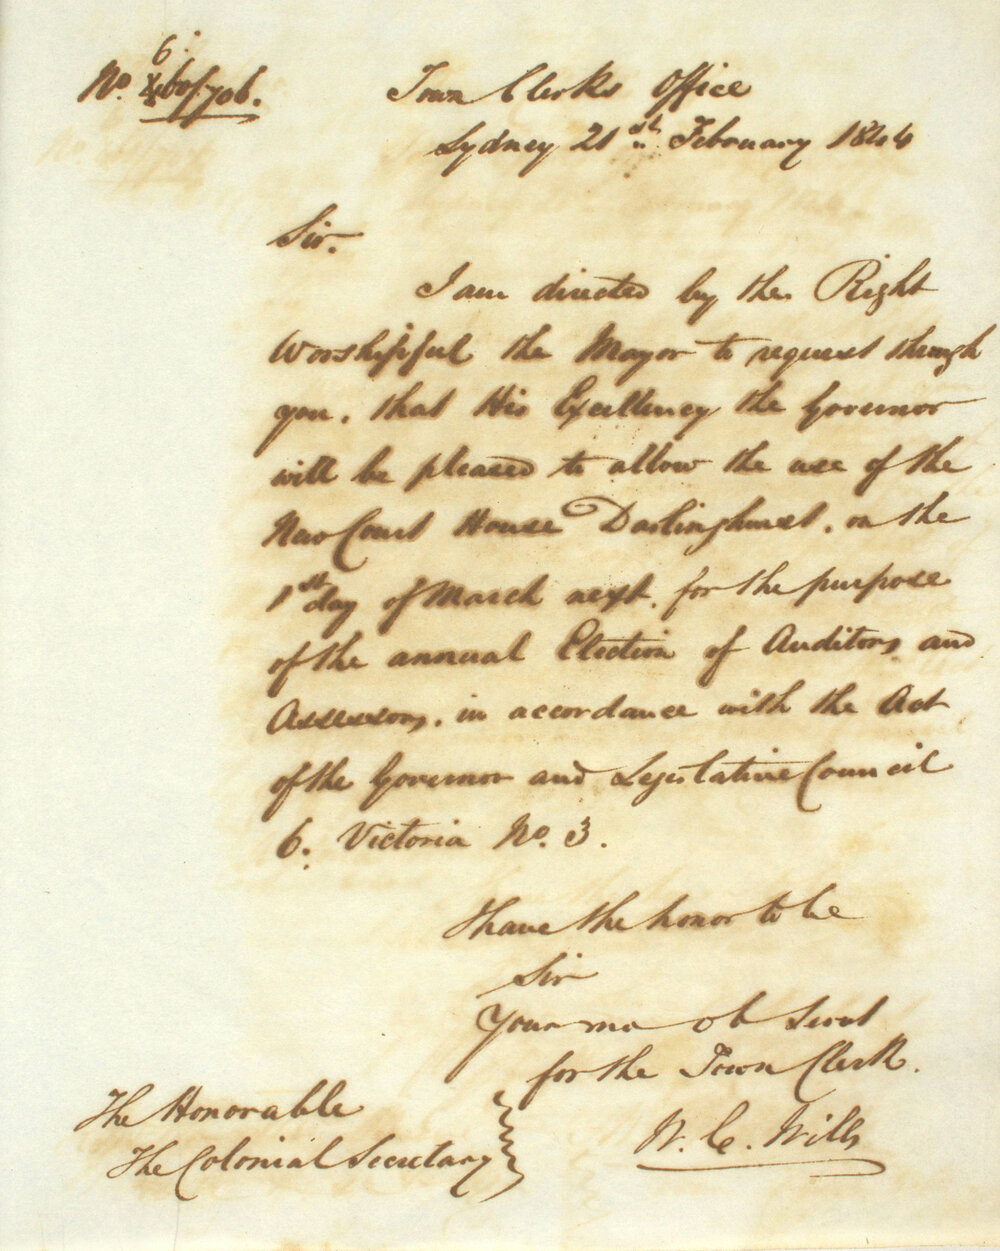 No. 60/706.
Town Clerks Office
Sydney 21st February 1844
Sir.
I am directed by the Right
Worshipful the Mayor to request through
you, that His Excellency the Governor
will be pleased to allow the use of the
New Court House Darlinghurst, on the
1st day of March next, for the purpose
of the annual Election of Auditors and
Assessors, in accordance with the Act
of the Governor and Legislative Council
6. Victoria No. 3.
I have the honor to be
Sir
Your mo ob Servt
for the Town Clerk.
W. C. Wills
The Honorable
The Colonial Secretary